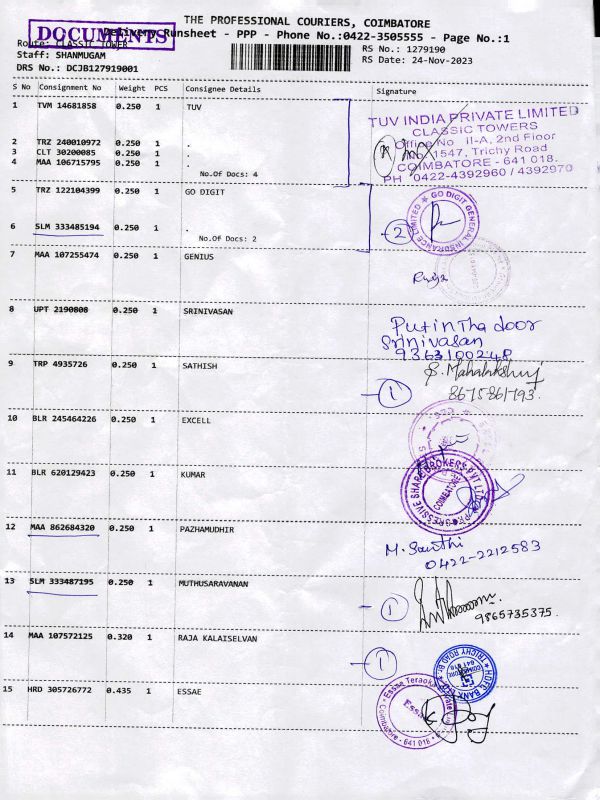 THE PROFESSIONAL COURIERS, COIMBATORE
DOCUMENTS
Delivery Runsheet - PPP - Phone No.:0422-3505555 - Page No.:1
Route: CLASSIC TOWER
RS No.: 1279190
Staff: SHANMUGAM
RS Date: 24-Nov-2023
DRS No.: DCJB127919001
S No Consignment No Weight PCS Consignee Details Signature
1 TVM 14681858 0.250 1 TUV
TUV INDIA PRIVATE LIMITED
CLASSIC TOWERS
Office No II-A, 2nd Floor
No. 1547, Trichy Road
COIMBATORE - 641 018.
PH 0422-4392960 / 4392970
2 TRZ 240010972 0.250 1 .
3 CLT 30200085 0.250 1 .
4 MAA 106715795 0.250 1 .
No.Of Docs: 4
5 TRZ 122104399 0.250 1 GO DIGIT
GO DIGIT GENERAL INSURANCE LIMITED
2
6 SLM 333485194 0.250 1 .
No.Of Docs: 2
7 MAA 107255474 0.250 1 GENIUS
8 UPT 2190808 0.250 1 SRINIVASAN
Put in tha door
Srinivasan
9 TRP 4935726 0.250 1 SATHISH
1
8675861793.
10 BLR 245464226 0.250 1 EXCELL
11 BLR 620129423 0.250 1 KUMAR
PROGRESSIVE SHARE BROKERS PVT LTD
COIMBATORE
12 MAA 862684320 0.250 1 PAZHAMUDHIR
M. Santhi
0422-2212583
13 SLM 333487195 0.250 1 MUTHUSARAVANAN
1
9865735375.
14 MAA 107572125 0.320 1 RAJA KALAISELVAN
1
HDFC BANK
TRICHY ROAD BR.
COIMBATORE
641 018
15 HRD 305726772 0.435 1 ESSAE
Essae Teraoka Private Limited
Essae
Coimbatore - 641 018